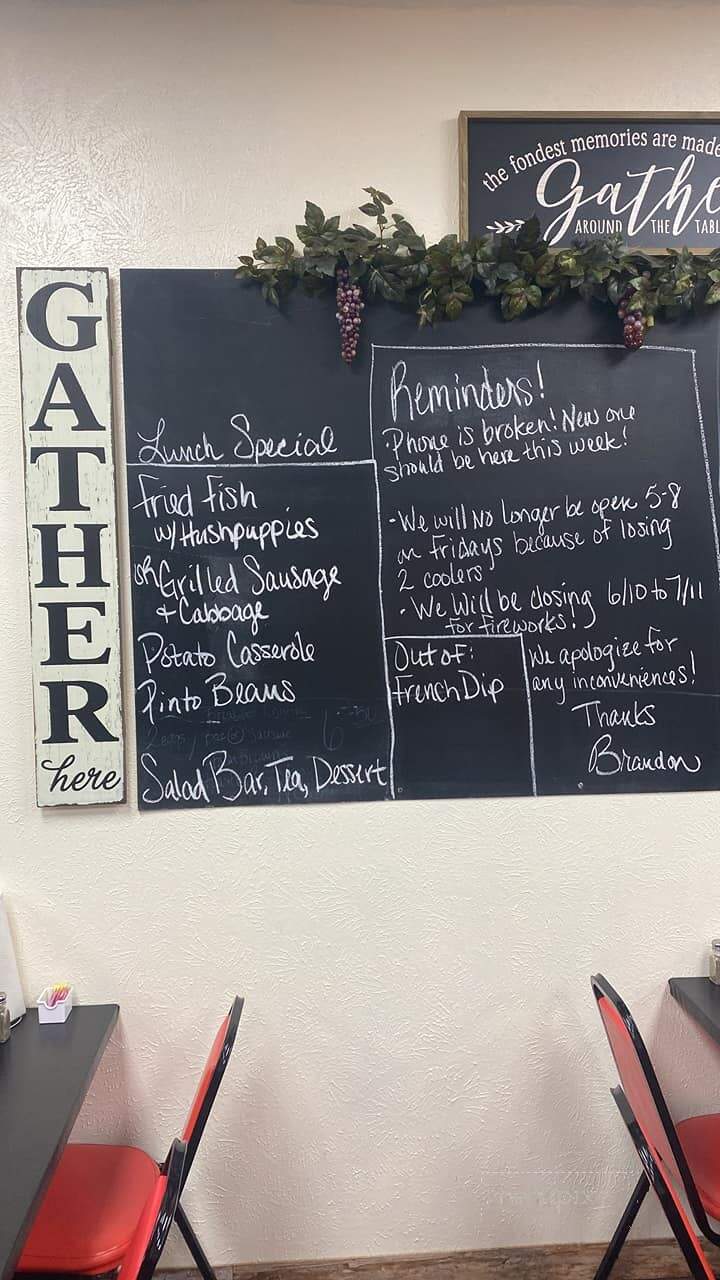 the fondest memories are made
Gathe
AROUND THE TABL
GATHER
here
Lunch Special
Fried Fish
w/Hushpuppies
OR Grilled Sausage
+ Cabbage
Potato Casserole
Pinto Beans
Salad Bar, Tea, Dessert
Reminders!
· Phone is broken! New one
should be here this week!
· We will No longer be open 5-8
on Fridays because of losing
2 coolers
· We Will be closing 6/10 to 7/11
for fireworks!
Out of:
French Dip
We apologize for
any inconveniences!
Thanks
Brandon